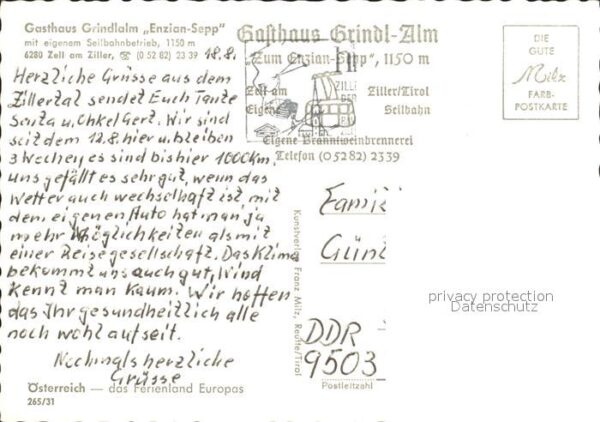 Gasthaus Grindlalm „Enzian-Sepp"
mit eigenem Seilbahnbetrieb, 1150 m
6280 Zell am Ziller, ☏ (0 52 82) 23 39
18.8.
Herzliche Grüsse aus dem
Zillertal sendet Euch Tante
Senta u. Onkel Gert. Wir sind
seit dem 12.8. hier u. bleiben
3 Wochen, es sind bis hier 1000 km.
uns gefällt es sehr gut, wenn das
Wetter auch wechselhaft ist, mit
dem eigenen Auto hat man ja
mehr Möglichkeiten als mit
einer Reisegesellschaft. Das Klima
bekommt uns auch gut, Wind
kennt man kaum. Wir hoffen
das Ihr gesundheitlich alle
noch wohl auf seit.
Nochmals herzliche
Grüsse
Österreich — das Ferienland Europas
265/31
Gasthaus Grindl-Alm
„Zum Enzian-Sepp", 1150 m
Zell am Ziller/Tirol
Eigene Seilbahn
Eigene Branntweinbrennerei
Telefon (0 52 82) 23 39
DIE
GUTE
Milz
FARB-
POSTKARTE
Kunstverlag Franz Milz, Reutte/Tirol
Famil
Günt
DDR
9503
Postleitzahl
privacy protection
Datenschutz